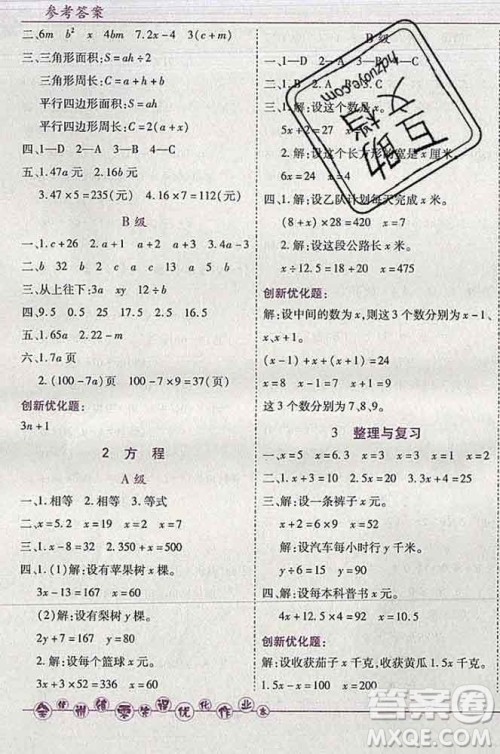 参考答案
二、6m b² x 4bm 7.2x-4 3(c+
三、三角形面积:S=ah÷2
三角形周长:C=a+b+c
平行四边形面积:S=ah
平行四边形周长:C=2(a+x)
四、1—D 2—A 3—B 4—C
五、1.47a元 2.16b元
3.47×5=235(元) 4.16×7=112(元)
B级
一、1.c+26 2.1+a 3.5x+8
二、b 32 2 d c 35
三、从上往下:3a xy 12 ÷
四、9.5 0.5 25 10
五、1.65a 2.22-m
六、1.7a页
2.(100-7a)页 100-7×9=37(页)
创新优化题:
3n+1
2 方 程
A级
一、1.相等 2.相等 3.等式
二、x=0.5 x=2 x=7
三、1.x-8=32 2.350+x=500
四、1.(1)解:设有苹果树x棵。
3x-13=167 x=60
(2)解:设有梨树y棵。
2y+7=167 y=80
2.解:设每个篮球x元。
3x+18=240 x=74
B级
一、1—D 2—A 3—
二、1.C 2.B 3.A
三、1.解:设这个数是x。
5x+2=10
x厘米。
6x=24 x=4
四、1.解:设乙队计划每天完成x米。
(8+x)×20=
2.解:设这段公路长x米。
x÷12.5=18+20 x=475
创新优化题:
解:设中间的数为x,则这3个数分别为x-1、
x、x+1。
(x-1)+(x+1)+x=24
x=8 x-1=7 x+1=9
这3个数分别为7、8、9。
3 整理与复习
一、x=35 x=5 x=5 x=0.5
三、解:设一条裤子x元。
x÷3+x=312 x=234
解:设汽车每小时行y千米。
y÷6=15 y=90
四、解:设每本科普书x元。
4x+12×7.5=132 x=10.5
创新优化题:
解:设收获茄子x千克,收获黄瓜1.5x千克。
1.5x-x=100 x=200
互助文档
hdzuoye.com
答案圈
MXQE.COM